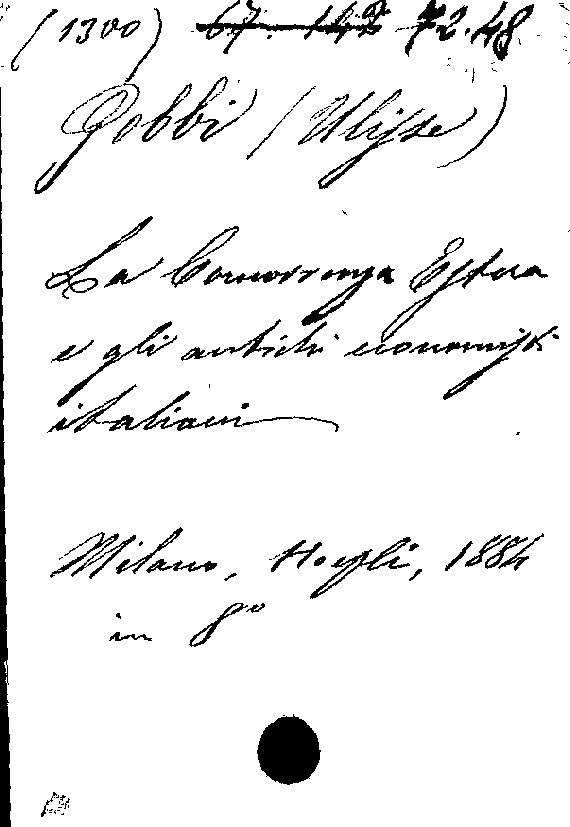 (1300) 67. 142 72.48
Gobbi (Ulisse)
La Concorrenza Estera
e gli antichi economisti
italiani
Milano, Hoepli, 1884
in 8º